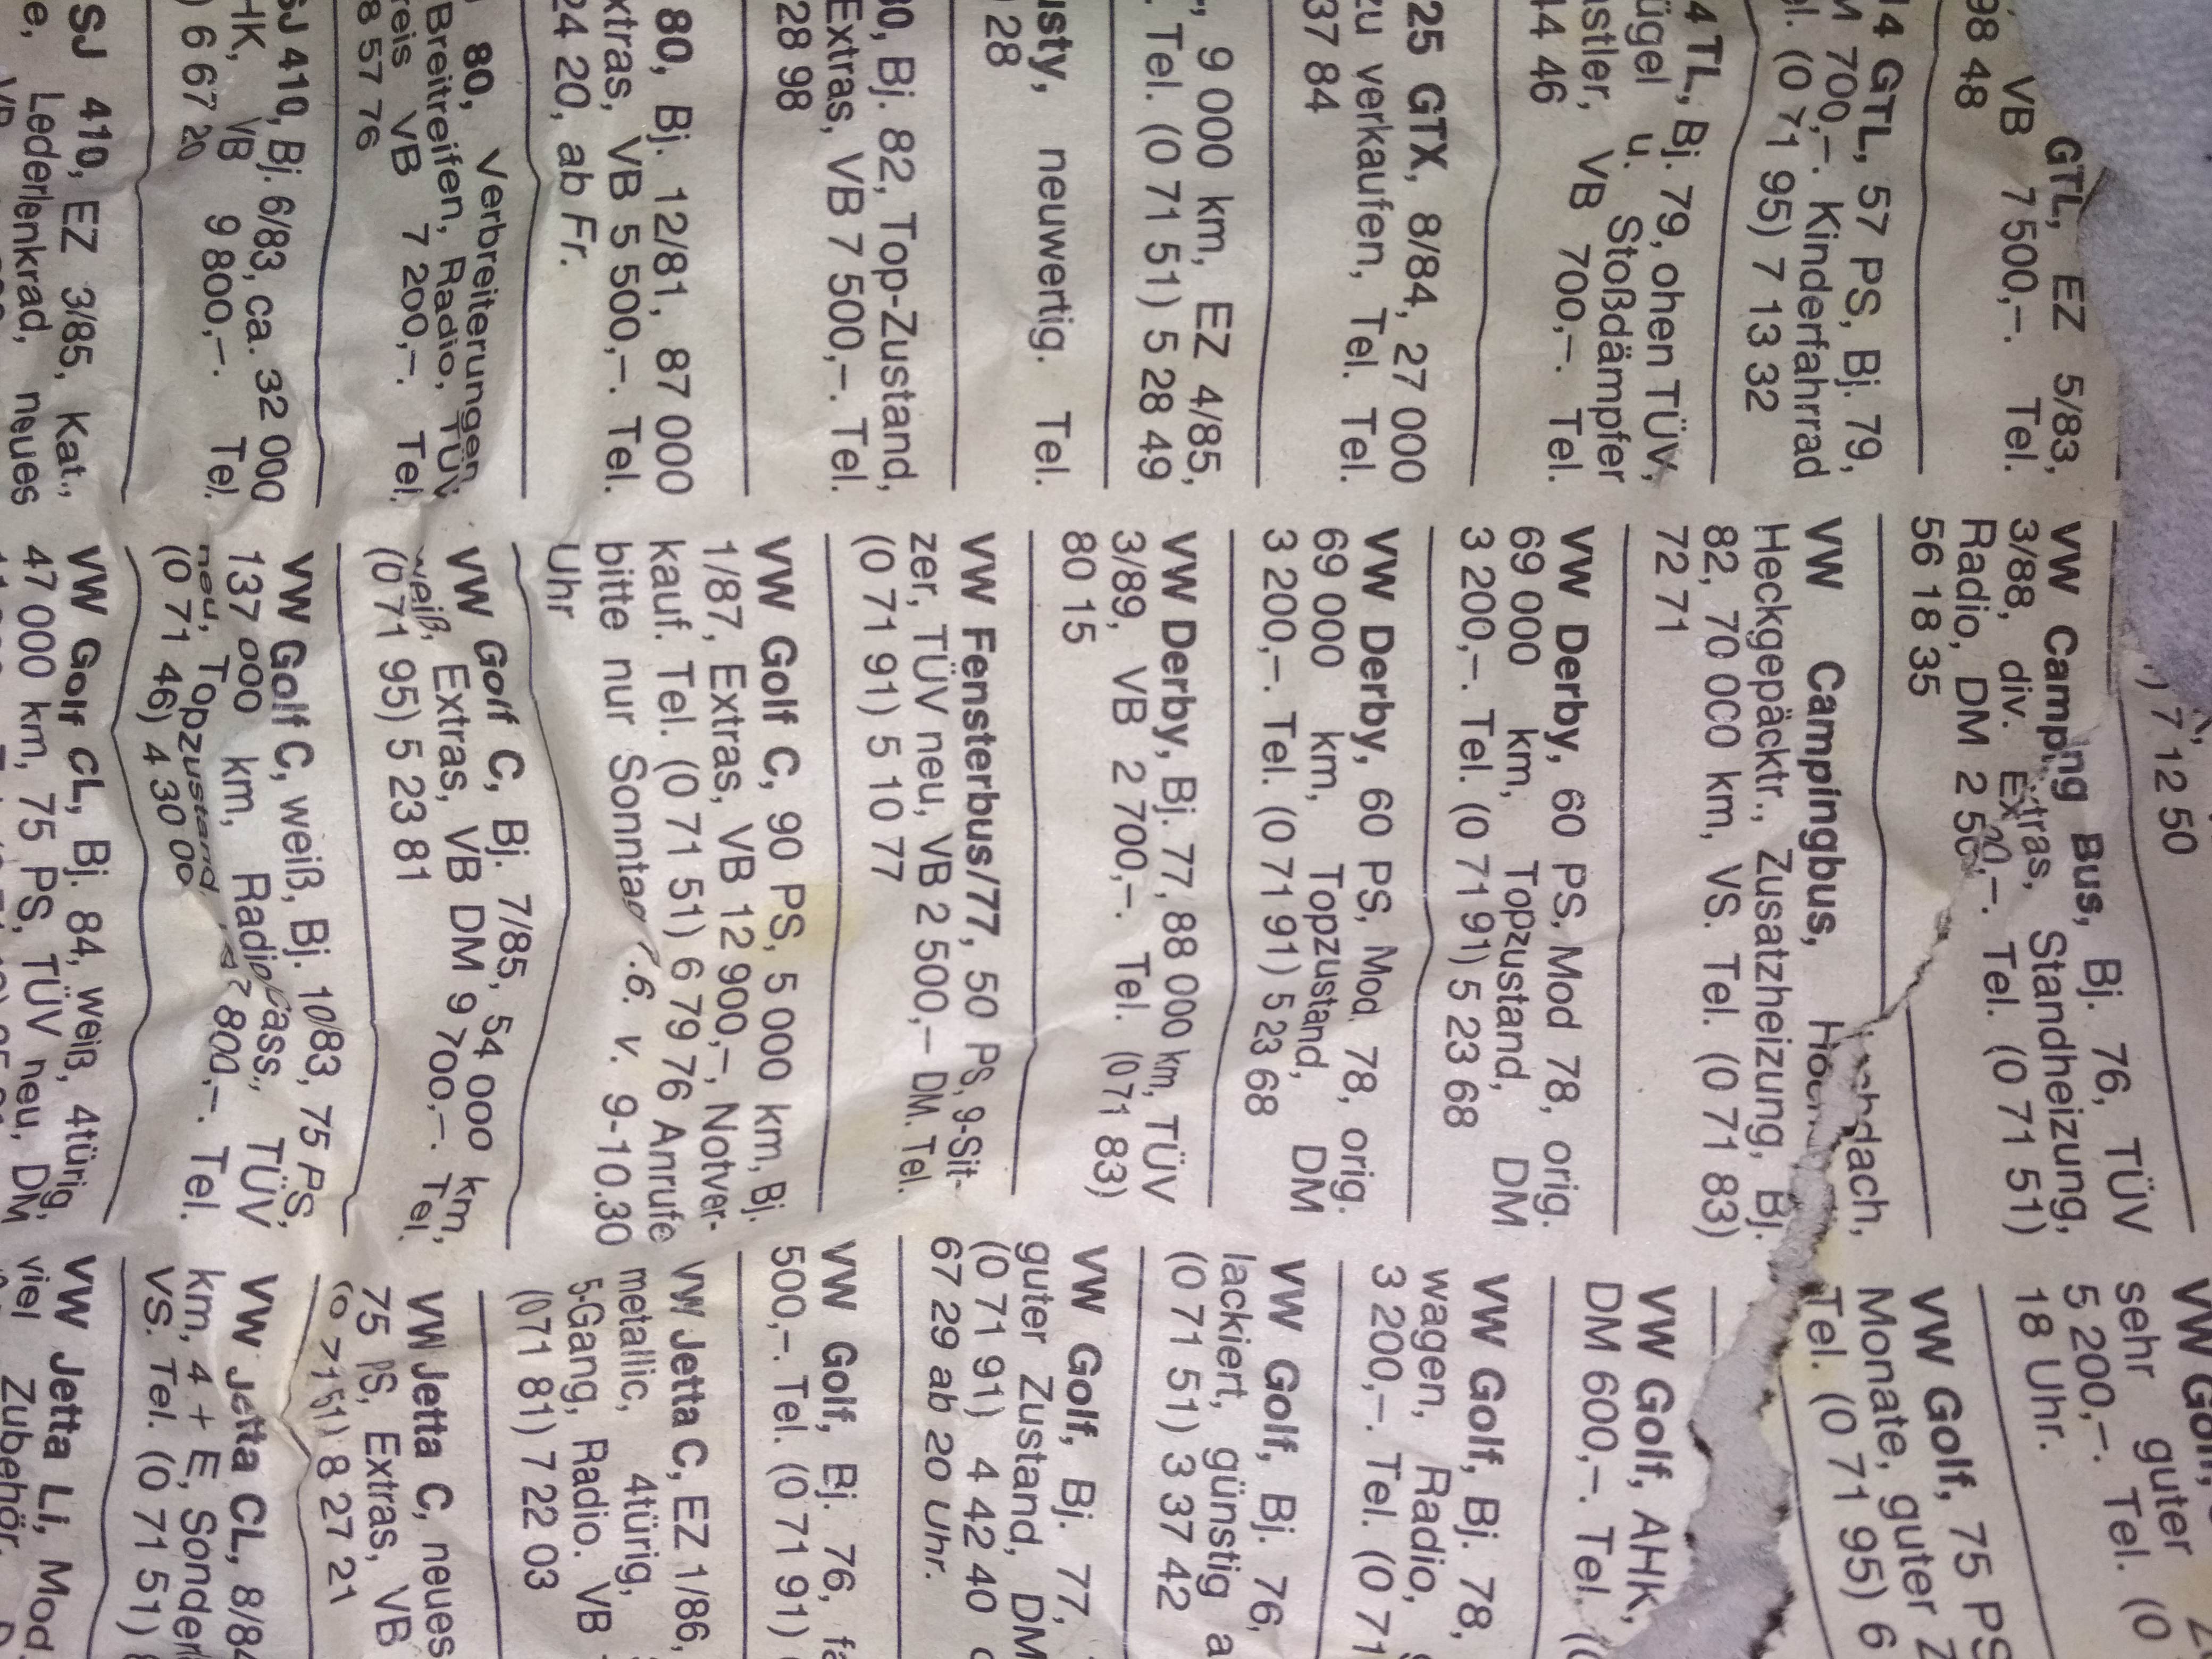 GTL, EZ 5/83,
VB 7 500,–. Tel.
98 48
4 GTL, 57 PS, Bj. 79,
M 700,–. Kinderfahrrad
el. (0 71 95) 7 13 32
4 TL, Bj. 79, ohen TÜV,
ügel u. Stoßdämpfer
astler, VB 700,–. Tel.
44 46
25 GTX, 8/84, 27 000
zu verkaufen, Tel. Tel.
37 84
9 000 km, EZ 4/85,
Tel. (0 71 51) 5 28 49
usty, neuwertig. Tel.
28
80, Bj. 82, Top-Zustand,
Extras, VB 7 500,–. Tel.
28 98
80, Bj. 12/81, 87 000
xtras, VB 5 500,–. Tel.
24 20, ab Fr.
80, Verbreiterungen,
Breitreifen, Radio, TÜV,
reis VB 7 200,–. Tel.
8 57 76
SJ 410, Bj. 6/83, ca. 32 000
HK, VB 9 800,–. Tel.
) 6 67 20
SJ 410, EZ 3/85, Kat.,
e, Lederlenkrad, neues
) 7 12 50
VW Camping Bus, Bj. 76, TÜV
3/88, div. Extras, Standheizung,
Radio, DM 2 500,–. Tel. (0 71 51)
56 18 35
VW Campingbus, Hochdach,
Heckgepäcktr., Zusatzheizung, Bj.
82, 70 000 km, VS. Tel. (0 71 83)
72 71
VW Derby, 60 PS, Mod 78, orig.
69 000 km, Topzustand, DM
3 200,–. Tel. (0 71 91) 5 23 68
VW Derby, 60 PS, Mod. 78, orig.
69 000 km, Topzustand, DM
3 200,–. Tel. (0 71 91) 5 23 68
VW Derby, Bj. 77, 88 000 km, TÜV
3/89, VB 2 700,–. Tel. (0 71 83)
80 15
VW Fensterbus/77, 50 PS, 9-Sit-
zer, TÜV neu, VB 2 500,– DM. Tel.
(0 71 91) 5 10 77
VW Golf C, 90 PS, 5 000 km, Bj.
1/87, Extras, VB 12 900,–, Notver-
kauf. Tel. (0 71 51) 6 79 76 Anrufe
bitte nur Sonntag .6. v. 9-10.30
Uhr
VW Golf C, Bj. 7/85, 54 000 km,
weiß, Extras, VB DM 9 700,–. Tel.
(0 71 95) 5 23 81
VW Golf C, weiß, Bj. 10/83, 75 PS,
137 000 km, Radio/Cass., TÜV
neu, Topzustand 800,–. Tel.
(0 71 46) 4 30 00
VW Golf CL, Bj. 84, weiß, 4türig,
47 000 km, 75 PS, TÜV neu, DM
VW Golf,
sehr guter
5 200,–. Tel. (0
18 Uhr.
VW Golf, 75 PS
Monate, guter Z
Tel. (0 71 95) 6
VW Golf, AHK,
DM 600,–. Tel. (
VW Golf, Bj. 78,
wagen, Radio,
3 200,–. Tel. (0 71
VW Golf, Bj. 76,
lackiert, günstig a
(0 71 51) 3 37 42
VW Golf, Bj. 77,
guter Zustand, DM
(0 71 91) 4 42 40
67 29 ab 20 Uhr.
VW Golf, Bj. 76, fa
500,–. Tel. (0 71 91)
VW Jetta C, EZ 1/86,
metallic, 4türig,
5-Gang, Radio. VB
(0 71 81) 7 22 03
VW Jetta C, neues
75 PS, Extras, VB
(0 71 51) 8 27 21
VW Jetta CL, 8/84
km, 4 + E, Sonder
VS. Tel. (0 71 51)
VW Jetta Li, Mod.
viel Zubehör.